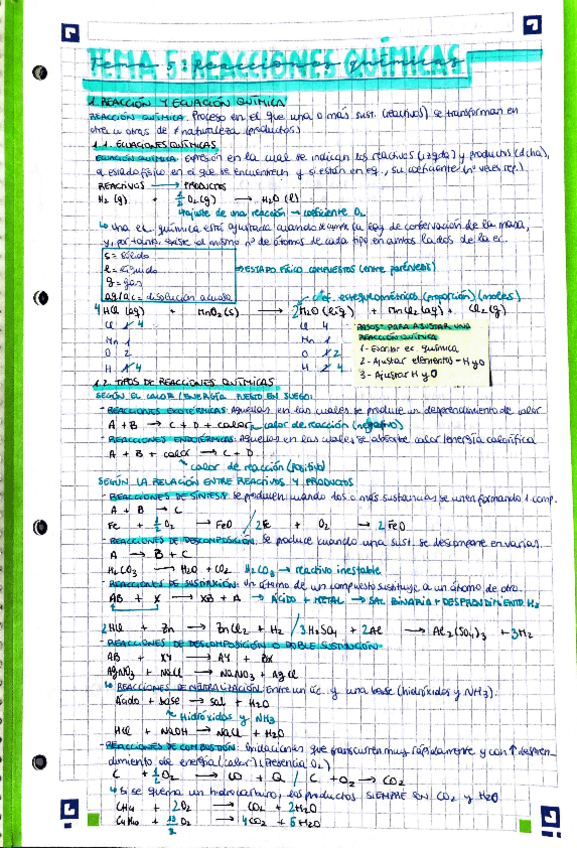 Tema 5: Reacciones químicas
1. REACCIÓN Y ECUACIÓN QUÍMICA
REACCIÓN QUÍMICA: Proceso en el que una o más sust. (reactivos) se transforman en
otra u otras de ≠ naturaleza (productos)
1.1. ECUACIONES QUÍMICAS
ECUACIÓN QUÍMICA: expresión en la cual se indican los reactivos (izqda) y productos (dcha),
el estado físico en el que se encuentren y si están en eq., su coeficiente (nº veces rep.)
REACTIVOS → PRODUCTOS
H₂ (g) + ½ O₂ (g) → H₂O (l)
ajuste de una reacción → coeficiente O₂
↳ una ec. química está ajustada cuando se cumple la ley de conservación de la masa,
y, por tanto, existe el mismo nº de átomos de cada tipo en ambos lados de la ec.
s = sólido
l = líquido
g = gas
aq/ac = disolución acuosa
⇒ ESTADO FÍSICO COMPUESTOS (entre paréntesis)
coef. estequiométricos (proporción) (moles)
4HCl (aq) + MnO₂ (s) → 2H₂O (l) + MnCl₂ (aq) + Cl₂ (g)
Cl 1 4 Cl 4
Mn 1 Mn 1
O 2 O 1 2
H 1 4 H 2 4
PASOS PARA AJUSTAR UNA
REACCIÓN QUÍMICA
1- Escribir ec. química
2- Ajustar elementos - H y O
3- Ajustar H y O
1.2. TIPOS DE REACCIONES QUÍMICAS
SEGÚN EL CALOR / ENERGÍA PUESTO EN JUEGO:
- REACCIONES EXOTÉRMICAS: Aquellas en las cuales se produce un desprendimiento de calor
A + B → C + D + calor → calor de reacción (negativo)
- REACCIONES ENDOTÉRMICAS: Aquellas en las cuales se absorbe calor/energía calorífica
A + B + calor → C + D
calor de reacción (positivo)
SEGÚN LA RELACIÓN ENTRE REACTIVOS Y PRODUCTOS
- REACCIONES DE SÍNTESIS: Se producen cuando dos o más sustancias se unen formando 1 comp.
A + B → C
Fe + ½ O₂ → FeO / 2Fe + O₂ → 2FeO
- REACCIONES DE DESCOMPOSICIÓN: Se produce cuando una sust. se descompone en varias.
A → B + C
H₂CO₃ → H₂O + CO₂ H₂CO₃ → reactivo inestable
- REACCIONES DE SUSTITUCIÓN: Un átomo de un compuesto sustituye a un átomo de otro
AB + X → XB + A → ÁCIDO + METAL → SAL BINARIA + DESPRENDIMIENTO H₂
2HCl + Zn → ZnCl₂ + H₂ / 3H₂SO₄ + 2Al → Al₂(SO₄)₃ + 3H₂
- REACCIONES DE DESCOMPOSICIÓN O DOBLE SUSTITUCIÓN:
AB + XY → AY + BX
AgNO₃ + NaCl → NaNO₃ + AgCl
↳ REACCIONES DE NEUTRALIZACIÓN: Entre un ác. y una base (hidróxidos y NH₃).
Ácido + base → sal + H₂O
Hidróxidos y NH₃
HCl + NaOH → NaCl + H₂O
- REACCIONES DE COMBUSTIÓN: Oxidaciones que transcurren muy rápidamente y con ↑ despren-
dimiento de energía (calor) (presencia O₂)
C + ½ O₂ → CO + Q / C + O₂ → CO₂
↳ si se quema un hidrocarburo, los productos SIEMPRE SON CO₂ y H₂O
CH₄ + 2O₂ → CO₂ + 2H₂O
C₄H₁₀ + 13/2 O₂ → 4CO₂ + 5H₂O